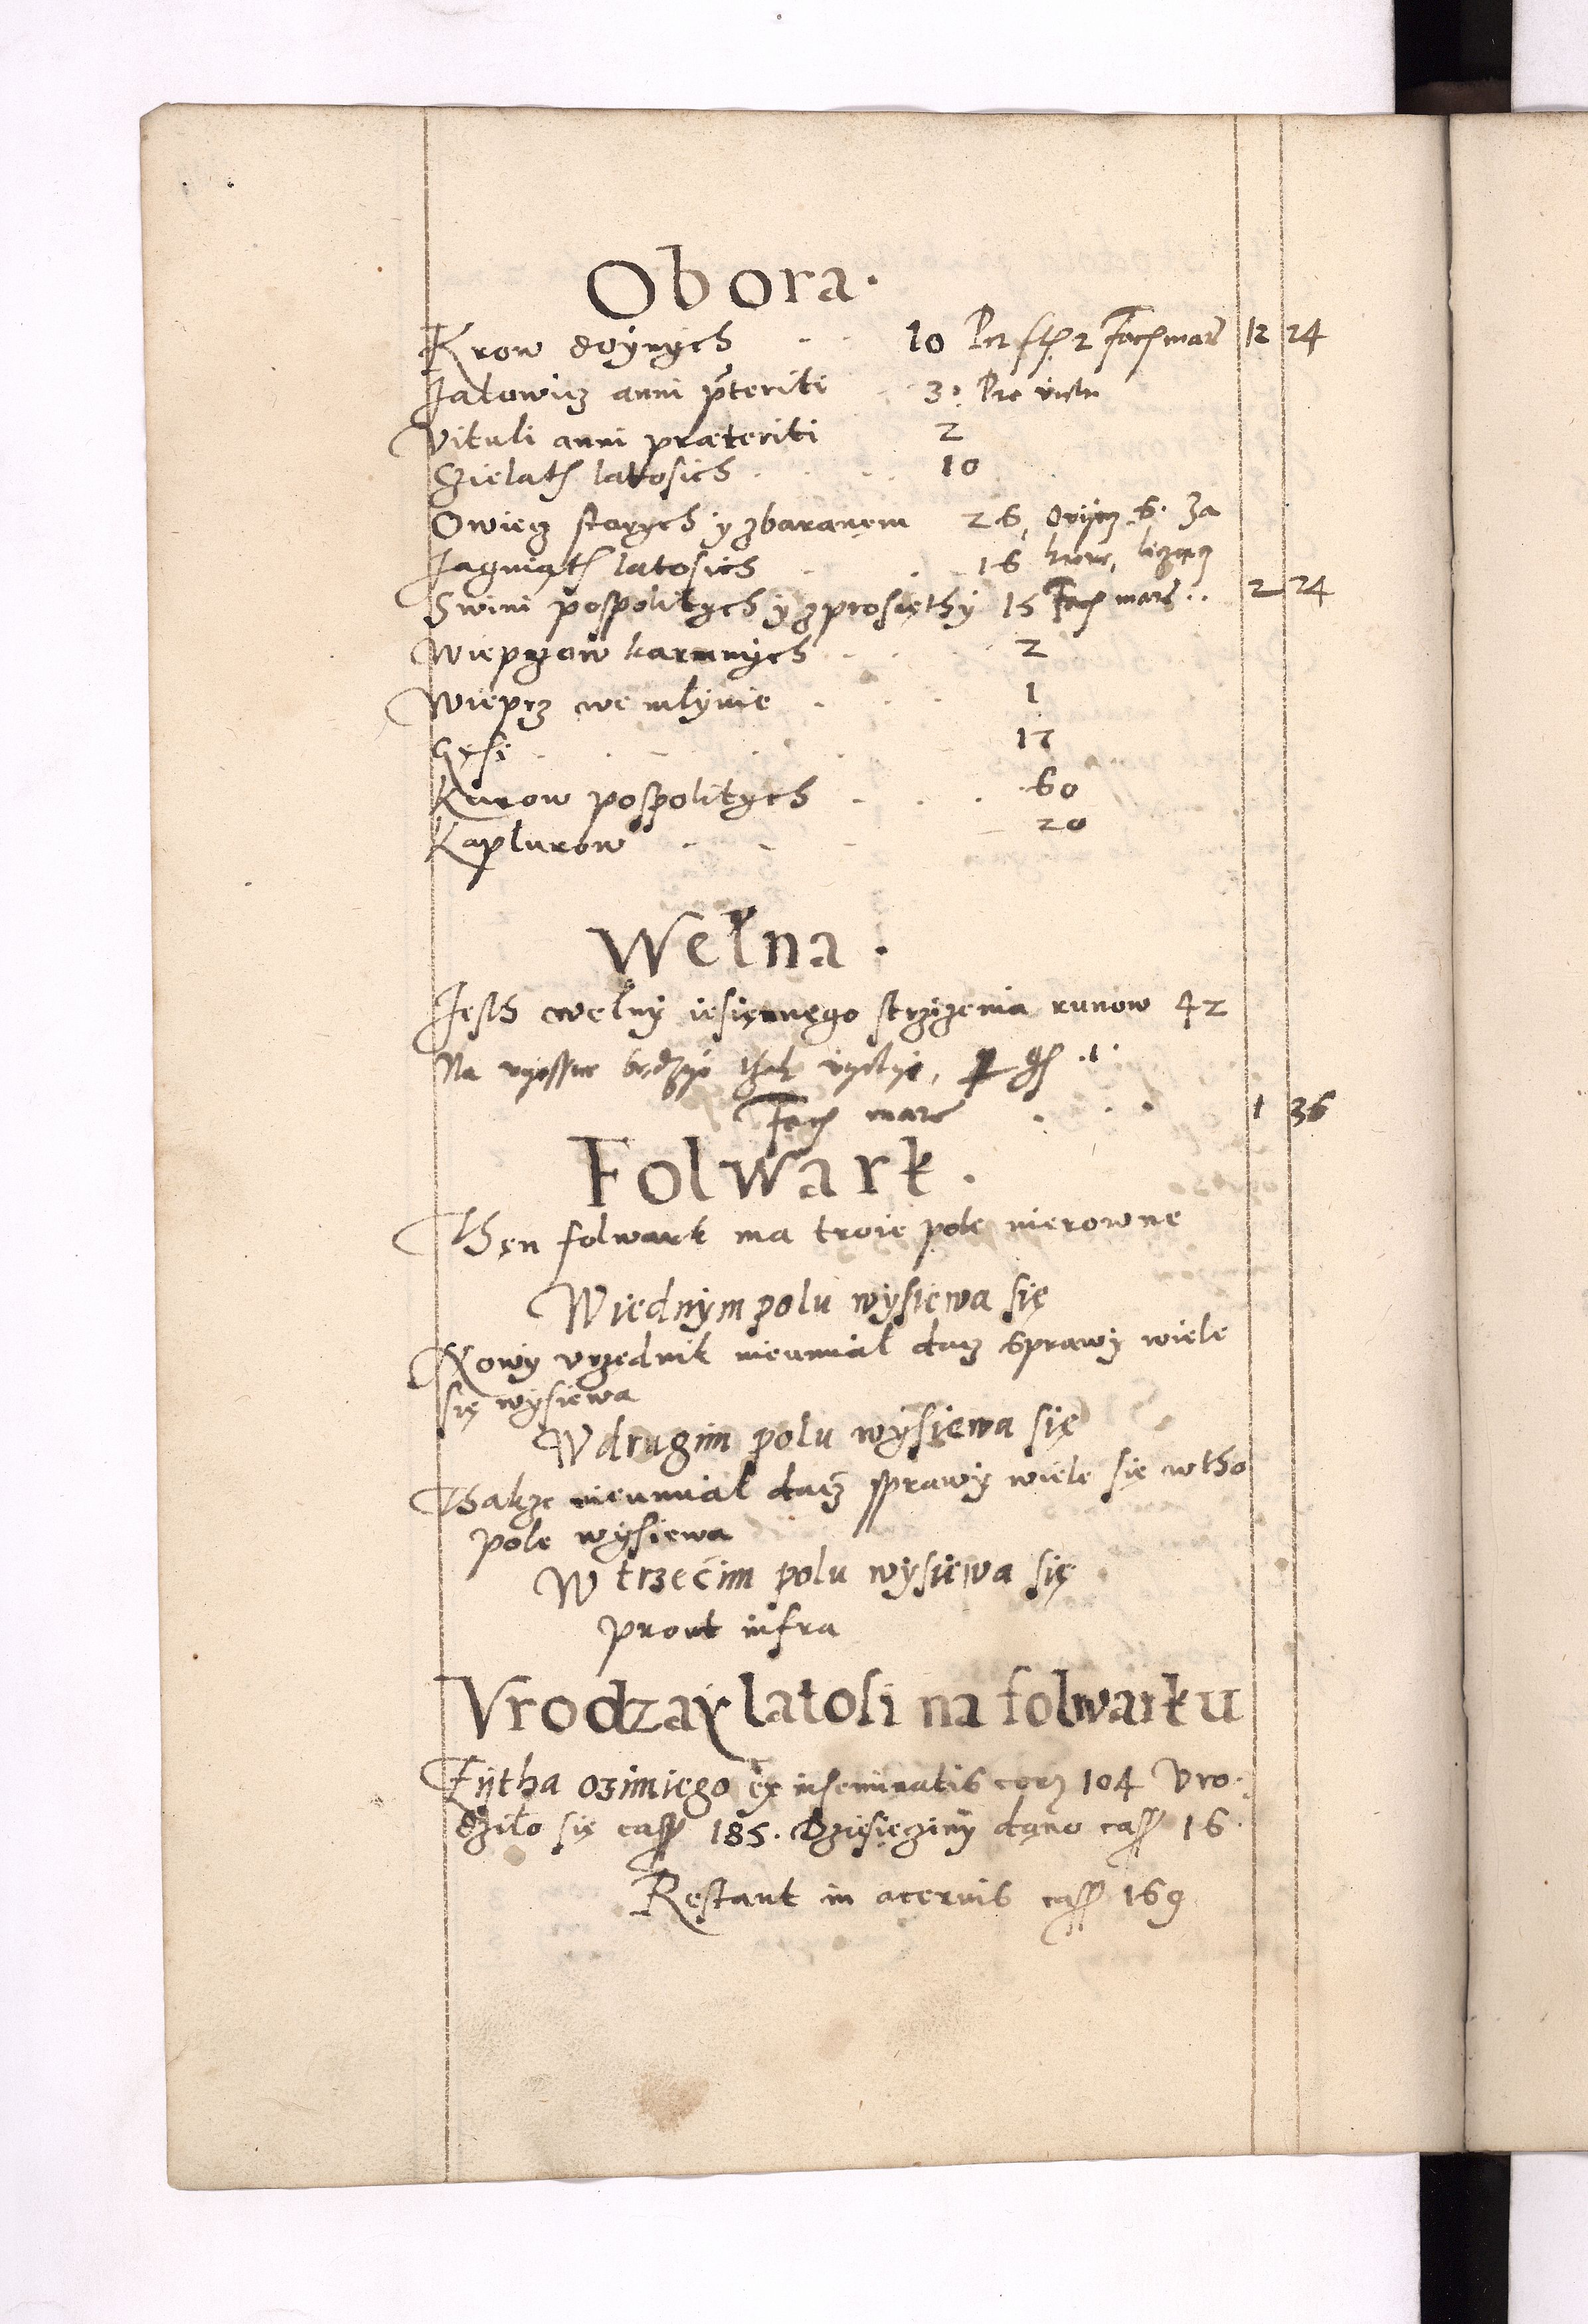 Obora.
Krow doynych 10 Per fl 2 Fac marc 12 24
Jałowicz anni pręteriti 3: Pro victu
Vituli anni præteriti 2
Czieląth latosich 10
Owiecz starych y zbaranęm 26, Owiecz 6. Za
Jagniąth latosich 16 krowę, licząncz
Swini pospolitych y zprosięthy 15 Fac marc 2 24
Wieprzow karmnych 2
Wieprz we młynie 1
Gęsi 17
Kurow pospolitych 60
Kapłunow 20
Wełna.
Jesth wełny iesięnnęgo strziżenia runow 42
Na będzie thak
Fac marc 1 36
Folwark.
Thęn folwark ma troie pole nierowne
Wiednym polu wysiewa się
Nowy vrzędnik nieumiał dacz sprawy wiele
się wysiewa
Wdrugim polu wysiewa się
Thakże nieumiał dacz sprawy wiele się wtho
pole wysiewa
W trzećim polu wysiewa się
prout infra
Vrodzay latosi na folwarku
Żytha ozimiego ex inseminatis corz 104 Vro:
dziło się cass 185. Dziesięciny dano cass 16
Restant in acervis cass 169